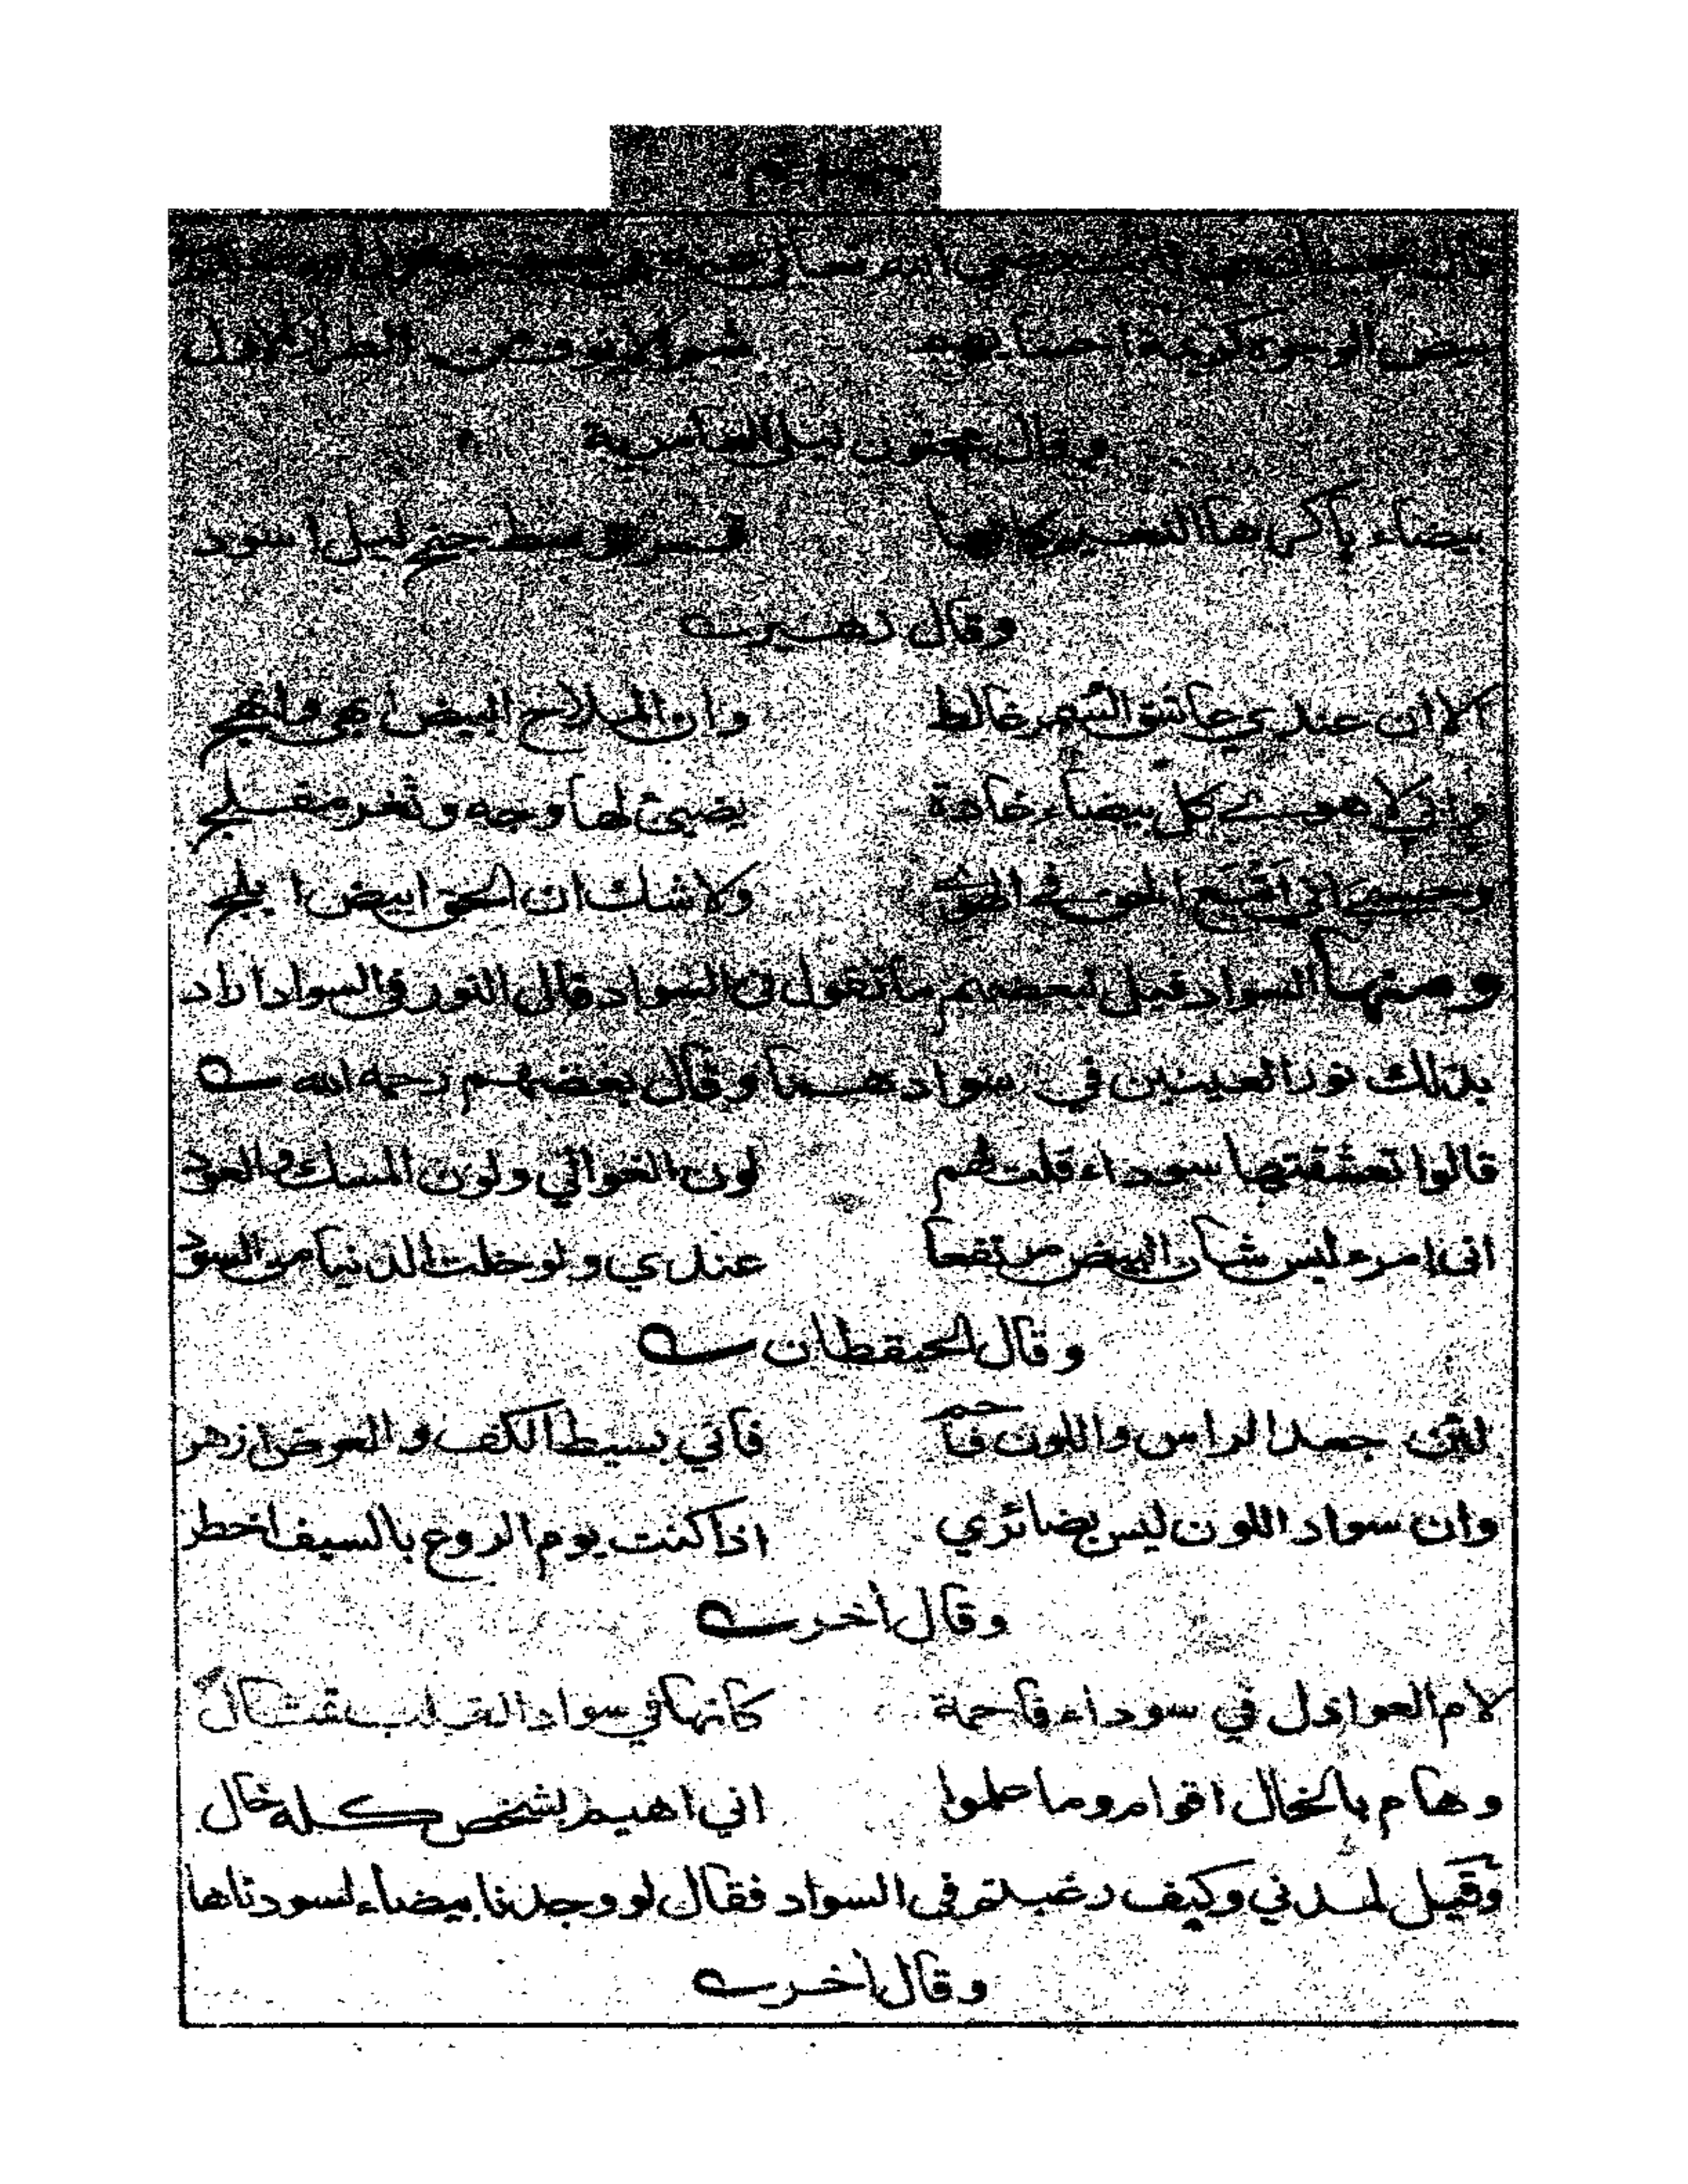 بيض الوجوه كريمة احسابهم شم الانوف من الطراز الاول
وقال مجنون ليلى العامرية
بيضاء باكرها النعيم كانها قمر توسط جنح ليل اسود
وقال زهير
الا ان عندي عاشق السمر غالط وان الملاح البيض ابهى وابهج
واني لاهوى كل بيضاء غادة يضيئ لها وجه وثغر مفلج
وحسبي اني اتبع الحق في الهوى ولا شك ان الحق ابيض ابلج
ومنها السواد قيل لبعضهم ما تقول في السواد قال النور في السواد اراد
بذلك نور العينين في سوادهما وقال بعضهم رحمه الله
قالوا تعشقتها سوداء قلت لهم لون الغوالي ولون المسك والعود
اني امرء ليس شان البيض مرتفعا عندي ولو خلت الدنيا من السود
وقال الحيقطان
لئن جعد الراس واللون فاحم فاني بسيط الكف والعرض ازهر
وان سواد اللون ليس بضائري اذا كنت يوم الروع بالسيف اخطر
وقال أخر
لام العواذل في سوداء فاحمة كانها في سواد القلب تمثال
وهام بالخال اقوام وما علموا اني اهيم بشخص كله خال
وقيل لمدني وكيف رغبتم في السواد فقال لو وجدنا بيضاء لسودناها
وقال أخر